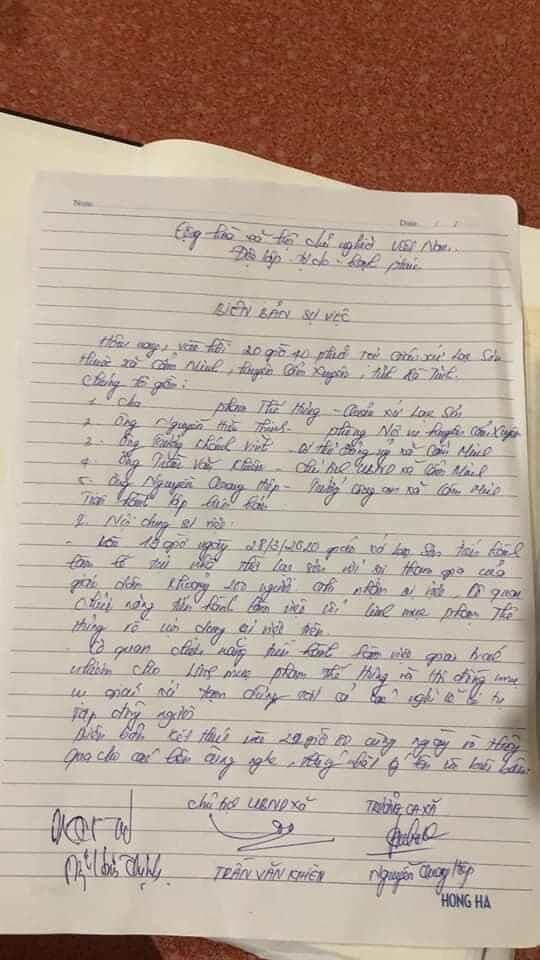 Name: Date: / /
Cộng hoà xã hội chủ nghĩa Việt Nam.
Độc lập - Tự do - hạnh phúc
BIÊN BẢN SỰ VIỆC
Hôm nay, vào hồi 20 giờ 40 phút tại giáo xứ Lạc Sơn
thuộc xã Cẩm Minh, huyện Cẩm Xuyên, tỉnh Hà Tĩnh.
Chúng tôi gồm:
1. Cha phạm Thế Hưng - Quản xứ Lạc Sơn
2. Ông Nguyễn Hữu phòng Nội vụ huyện Cẩm Xuyên
3. Ông Khánh Việt - Bí thư Đảng uỷ xã Cẩm Minh
4. Ông Trần Văn Khiên - Chủ tịch UBND xã Cẩm Minh
5. Ông Nguyễn Quang Hiệp - Trưởng công an xã Cẩm Minh
Tiến hành lập biên bản.
Nội dung sự việc:
- 19 giờ ngày 28/3/2020 giáo xứ Lạc Sơn tiến hành
làm lễ tại nhà thờ Lạc Sơn với sự tham gia của
giáo dân khoảng 200 người sự việc, Cơ quan
chức năng tiến hành làm việc với linh mục phạm Thế
Hưng rõ nội dung sự việc trên.
- Cơ quan chức năng tiến hành làm việc giao trách
nhiệm cho Linh mục phạm Thế Hưng và Hội đồng mục
vụ giáo xứ tạm dừng tất cả các nghi lễ có tụ
tập đông người
Biên bản kết thúc vào cùng ngày và thông
qua cho các bên cùng nghe, thống nhất ký tên vào biên bản.
Chủ tịch UBND xã TRƯỞNG CA XÃ
TRẦN VĂN KHIÊN Nguyễn Quang Hiệp
HONG HA